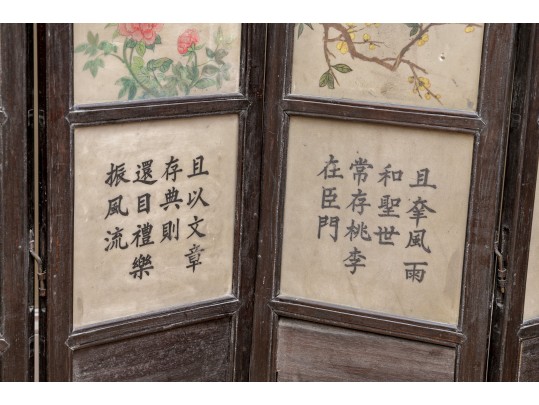 且風雨
和聖世
常存桃李
在臣門
且以文章
存典則
還目禮樂
振風流